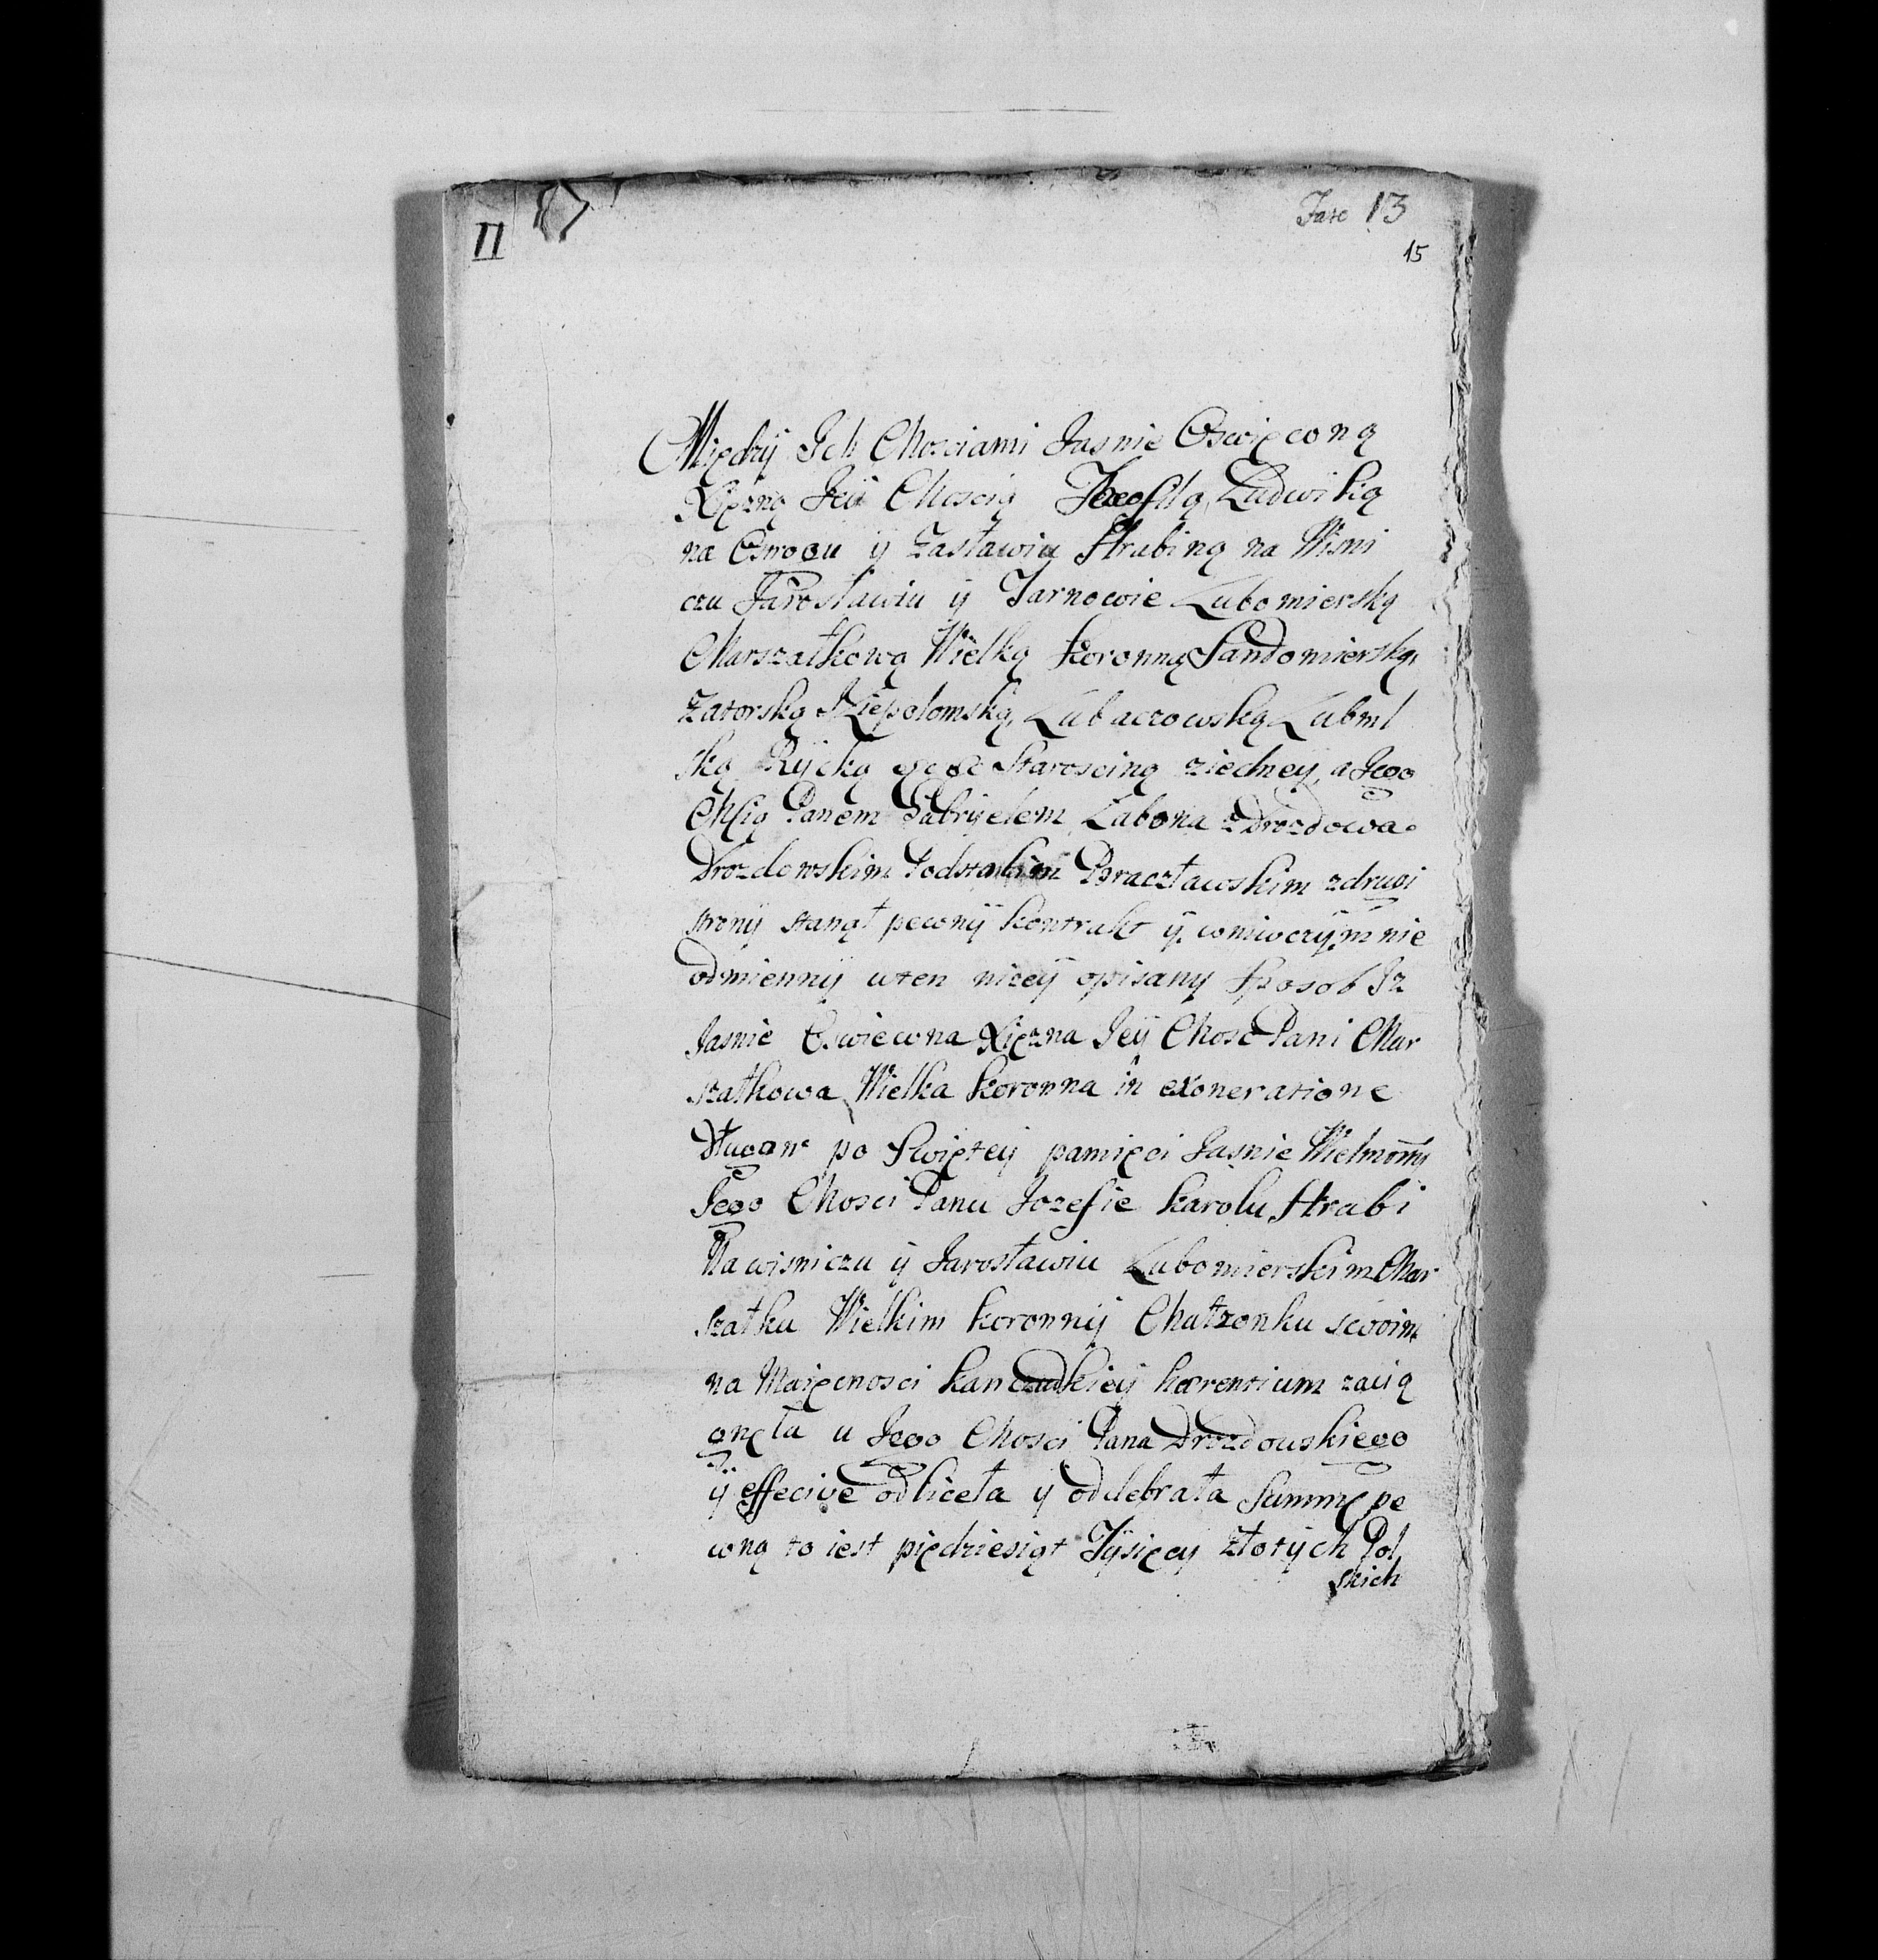 II
Fasc 13
15
Między Ich Mościami Jasnie Oswięconą
Xięzną Jeÿ Moscią Teofilą Ludwiką
na Ostrogu ÿ Zasławiu Hrabiną na Wisni
czu Jarosławiu ÿ Tarnowie Lubomierską
Marszałkową Wielką Koronną Sandomierską,
Zatorską Niepolomską, Lubaczowską Luboml
ską Rÿcką &c &c Staroscing ziedney, a Jego
Mscią Panem Gabryelem Łabona z Drozdowa
Drozdowskim Podstolim Bracztawskim zdrugi
stronÿ stanął pewnÿ kontrakt ÿ. wniwczÿm nie
odmiennÿ wten nizeÿ opisany sposob Iz
Jasnie Oswiecona Xięzna Jeÿ Mosc Pani Mar
szałkowa Wielka Koronna in exoneratione
Długow po Swięteÿ pamięci Jasnie Wielmoznÿ
Jego Mosci Panu Jozefie Karolu Hrabi
Na wisniczu ÿ Jarosławiu Lubomierskim Mar
szałku Wielkim koronnÿ Małzonku swoim
na Maięcnosci kanczudkieÿ hærentium zacią
gnęła u Jego Mosci Pana Drozdowskiego
ÿ effecive odliceła y oddebrała Summę pe
wną to iest pięcdziesiąt Tÿsięcy złotÿch Pol
skich